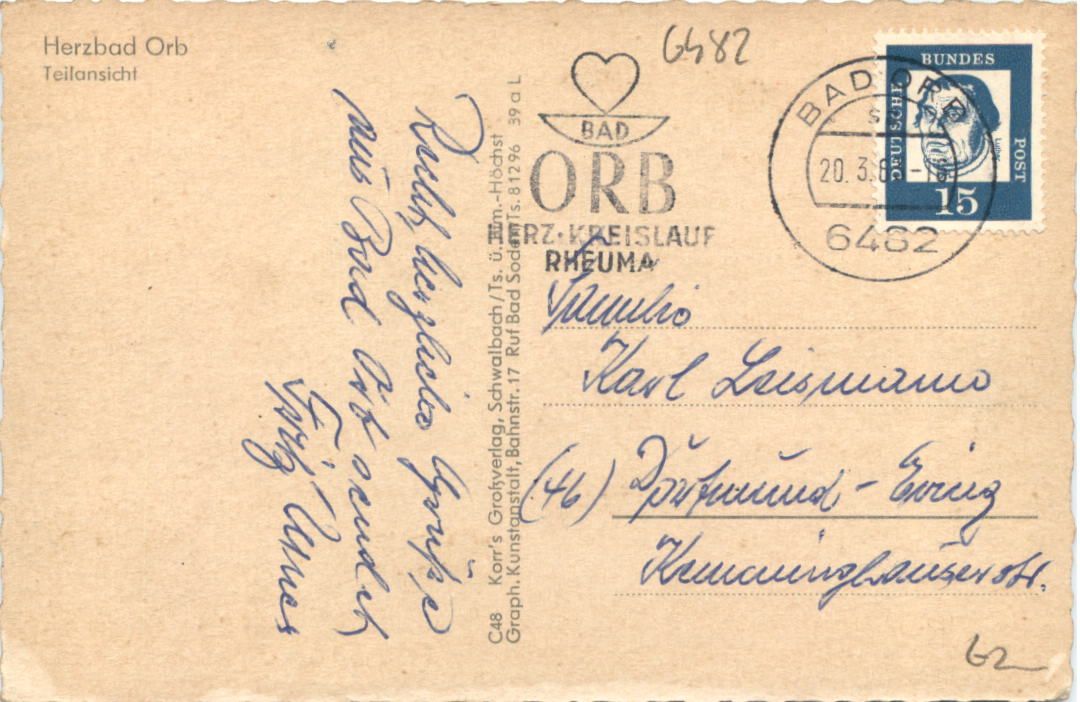 Herzbad Orb
Teilansicht
6482
BAD
ORB
HERZ·KREISLAUF
RHEUMA
BAD ORB
20. 3. 6
6482
DEUTSCHE
BUNDES
POST
Luther
15
Recht herzliche Grüße
aus Bad Orb sendet
Fritz
C48 Korr's Großverlag, Schwalbach/Ts. ü. Ffm.-Höchst
Graph. Kunstanstalt, Bahnstr. 17 Ruf Bad Soden/Ts. 81296 39 a L
Familie
Karl Leismann
(46) Dortmund - Eving
Kemminghauserstr.
62